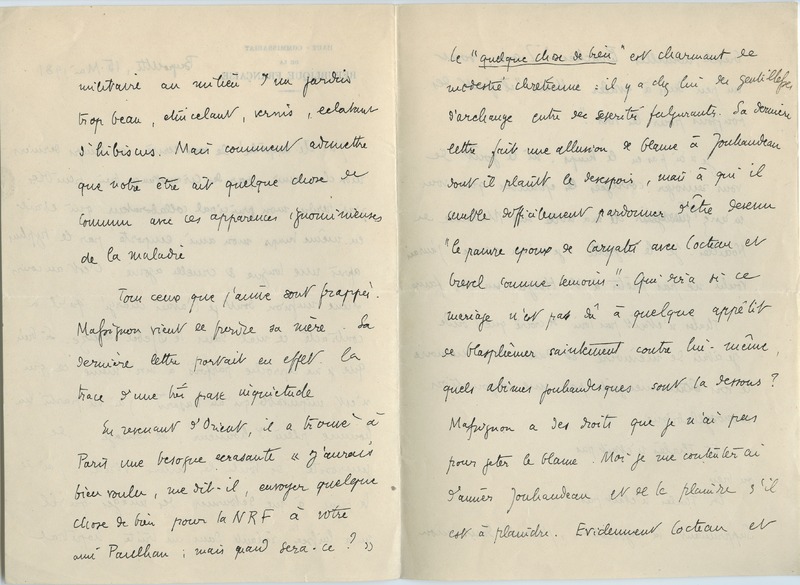 militaire au milieu d'un jardin
trop beau, étincelant, vernis, eclatant
d'hibiscus. Mais comment admettre
que votre être ait quelque chose de
commun avec ces apparences ignominieuses
de la maladie
Tous ceux que j'aime sont frappés.
Massignon vient de perdre sa mère. Sa
dernière lettre portait en effet la
trace d'une très grave inquiétude
En revenant d'Orient, il a trouvé à
Paris une besogne ecrasante « J'aurais
bien voulu, me dit-il, envoyer quelque
chose de bien pour la NRF à votre
ami Paulhan ; mais quand sera-ce ? »
Ce "quelque chose de bien" est charmant de
modestie chretienne : il y a chez lui des gentillesses
d'archange entre des severités fulgurants. Sa dernière
lettre fait une allusion de blame à Jouhandeau
dont il plaint le desespoir, mais à qui il
semble difficilement pardonner d'être devenu
"le pauvre epoux de Caryatis avec Cocteau et
comme temoins". Qui dira si ce
mariage n'est pas dû à quelque appétit
de blasphèmer saintement contre lui-même,
quels abîmes jouhandesques sont là dessous ?
Massignon a des droits que je n'ai pas
pour jeter le blame. Moi je me contenterai
d'aimer Jouhandeau et de le plaindre s'il
est à plaindre. Evidemment Cocteau et